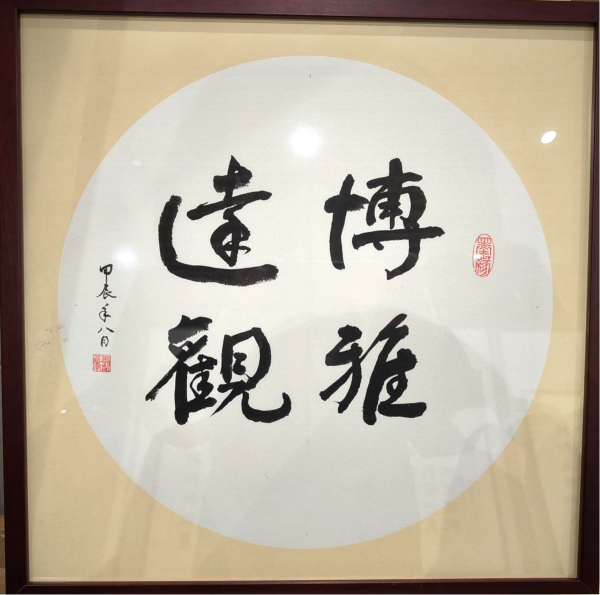 博雅
達觀
甲辰年八月